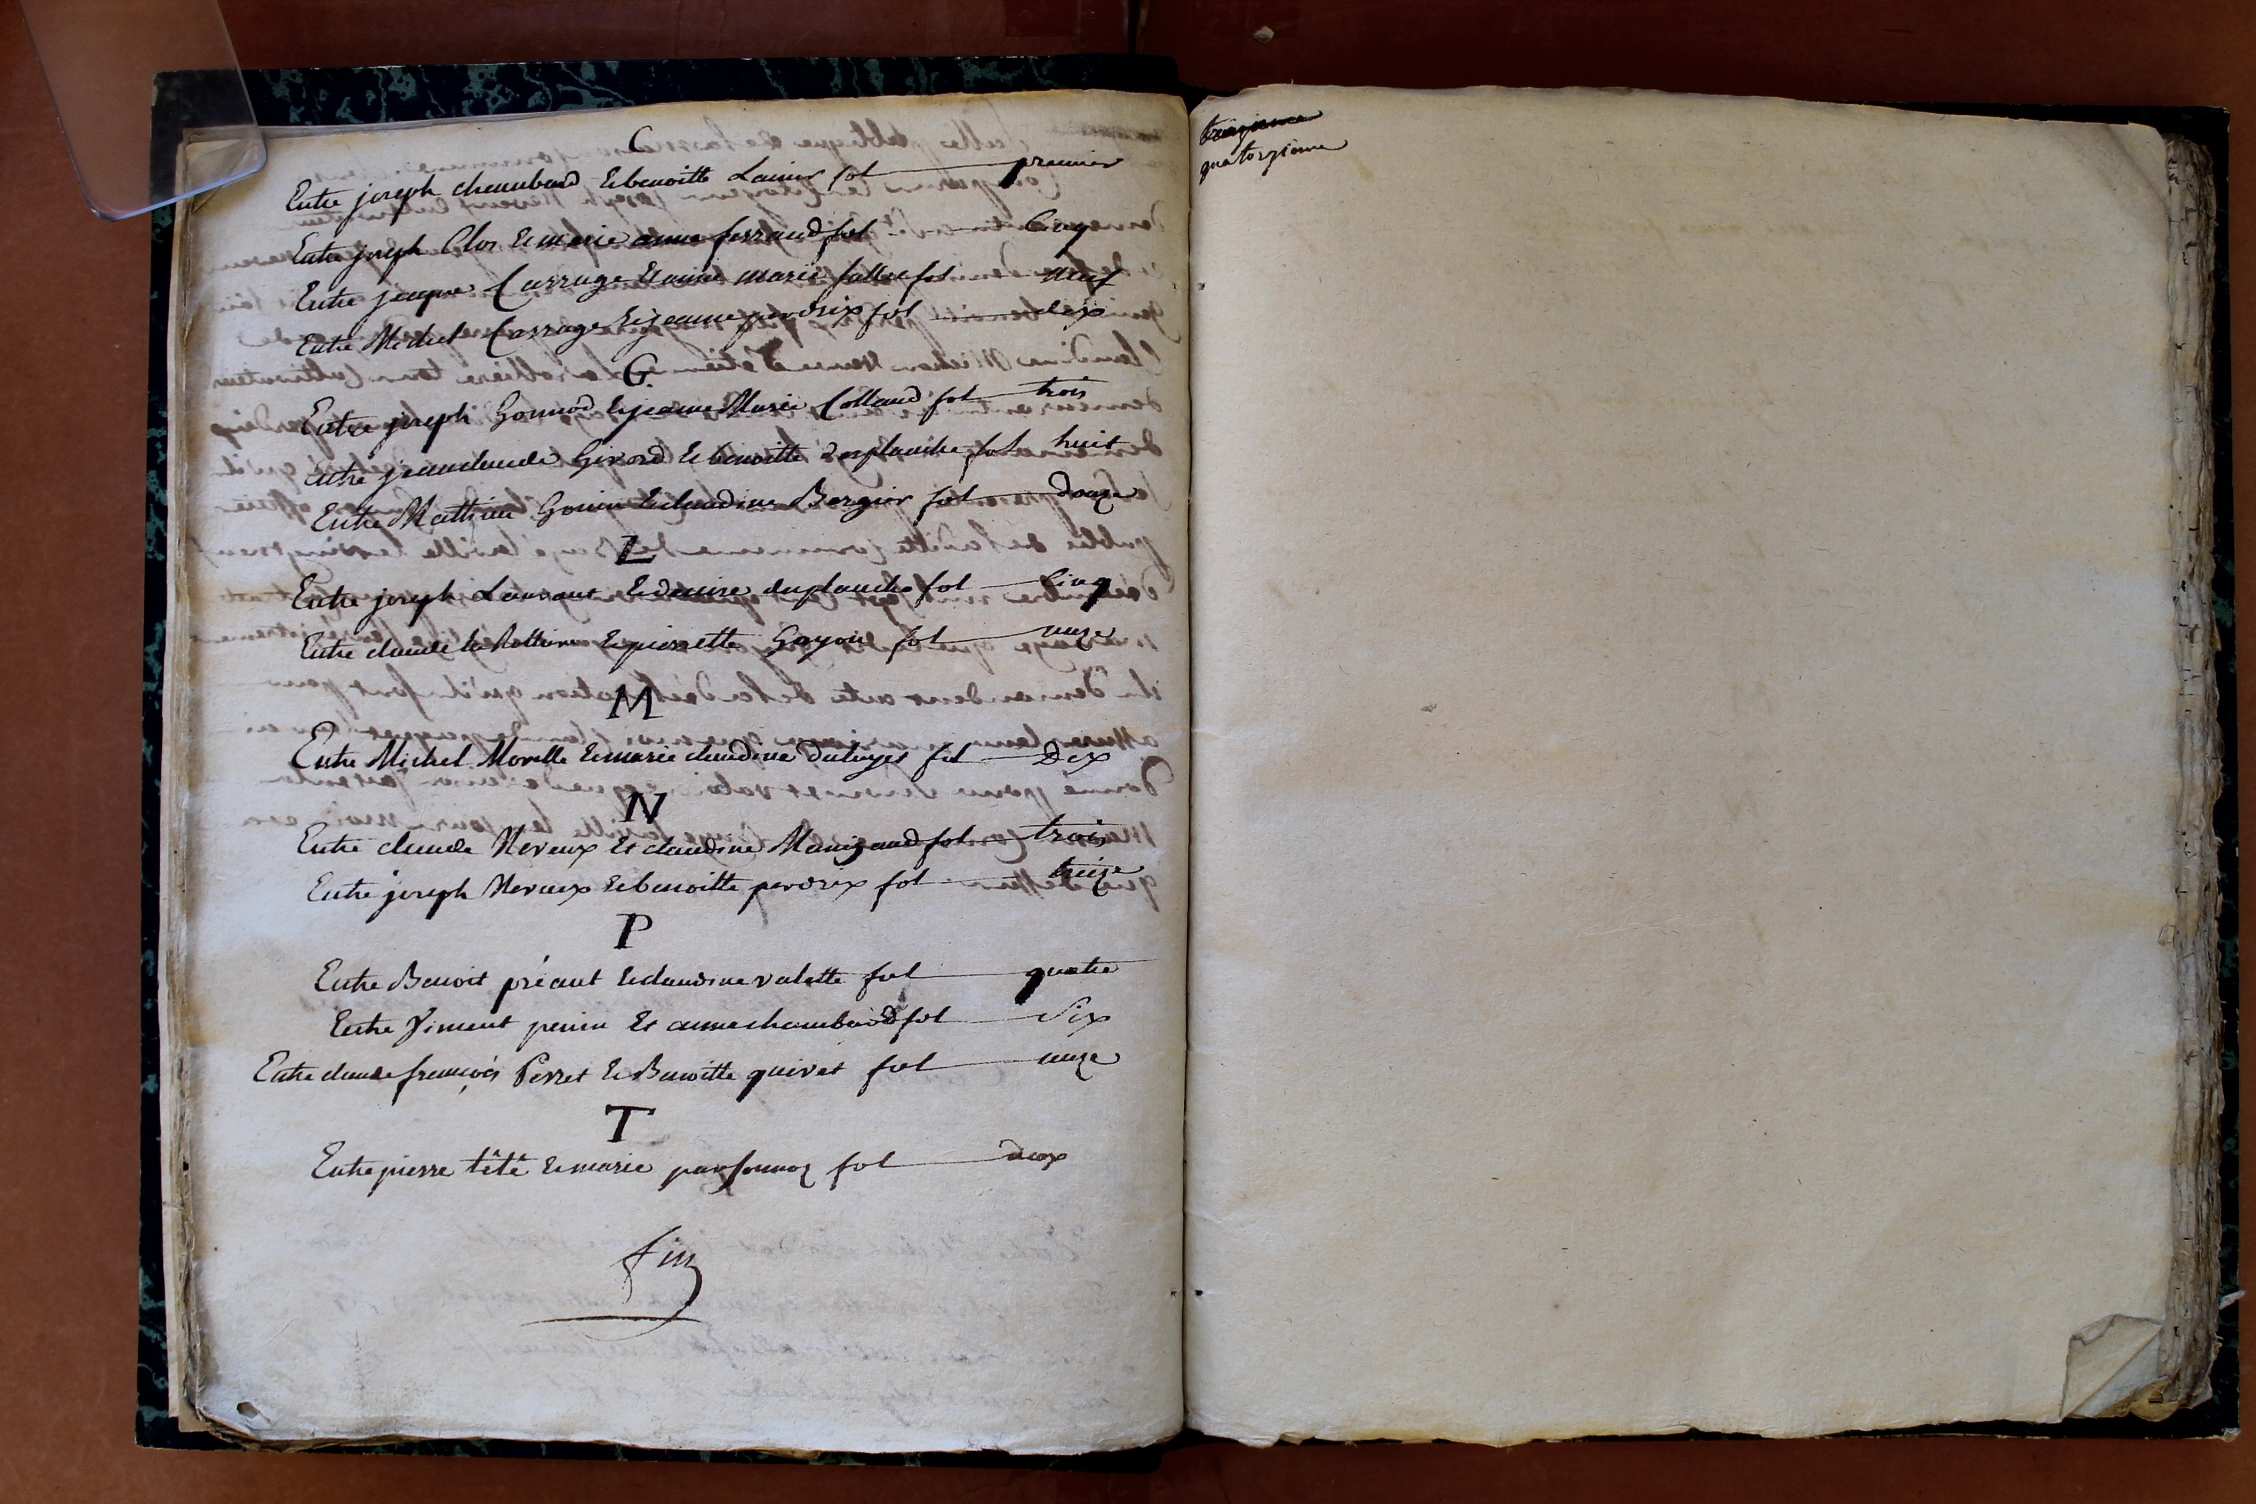 C
Entre joseph chambard et benoitte Lainir fol premier
Entre joseph Clos et marie anne ferraud fol Cinq
Entre jaque Carruge et aimé marie follie fol neuf
Entre Michel Carruge et jeanne perdrix fol dix
G
Entre joseph Gonnod et jeanne Marie Colland fol trois
Entre jeanclaude Girord et benoitte desplanche fol huit
Entre Mathieu Gonin et claudine Bergier fol douze
L
Entre joseph Laurant et denise duplanche fol Cinq
Entre claude la Rottiere et pierrette Goyon fol unze
M
Entre Michel Morelle et marie claudine Dutuyer fol Dix
N
Entre claude Neveux et claudine Manigaud fol trois
Entre joseph Neveux et benoitte perdrix fol treize
P
Entre Benoit préaut et claudine valette fol quatre
Entre Viment penin et anne chambard fol Six
Entre claude françois Perret et Benoitte quivet fol unze
T
Entre pierre têtê et marie parsonnoz fol deux
fin
treizieme
quatorzieme